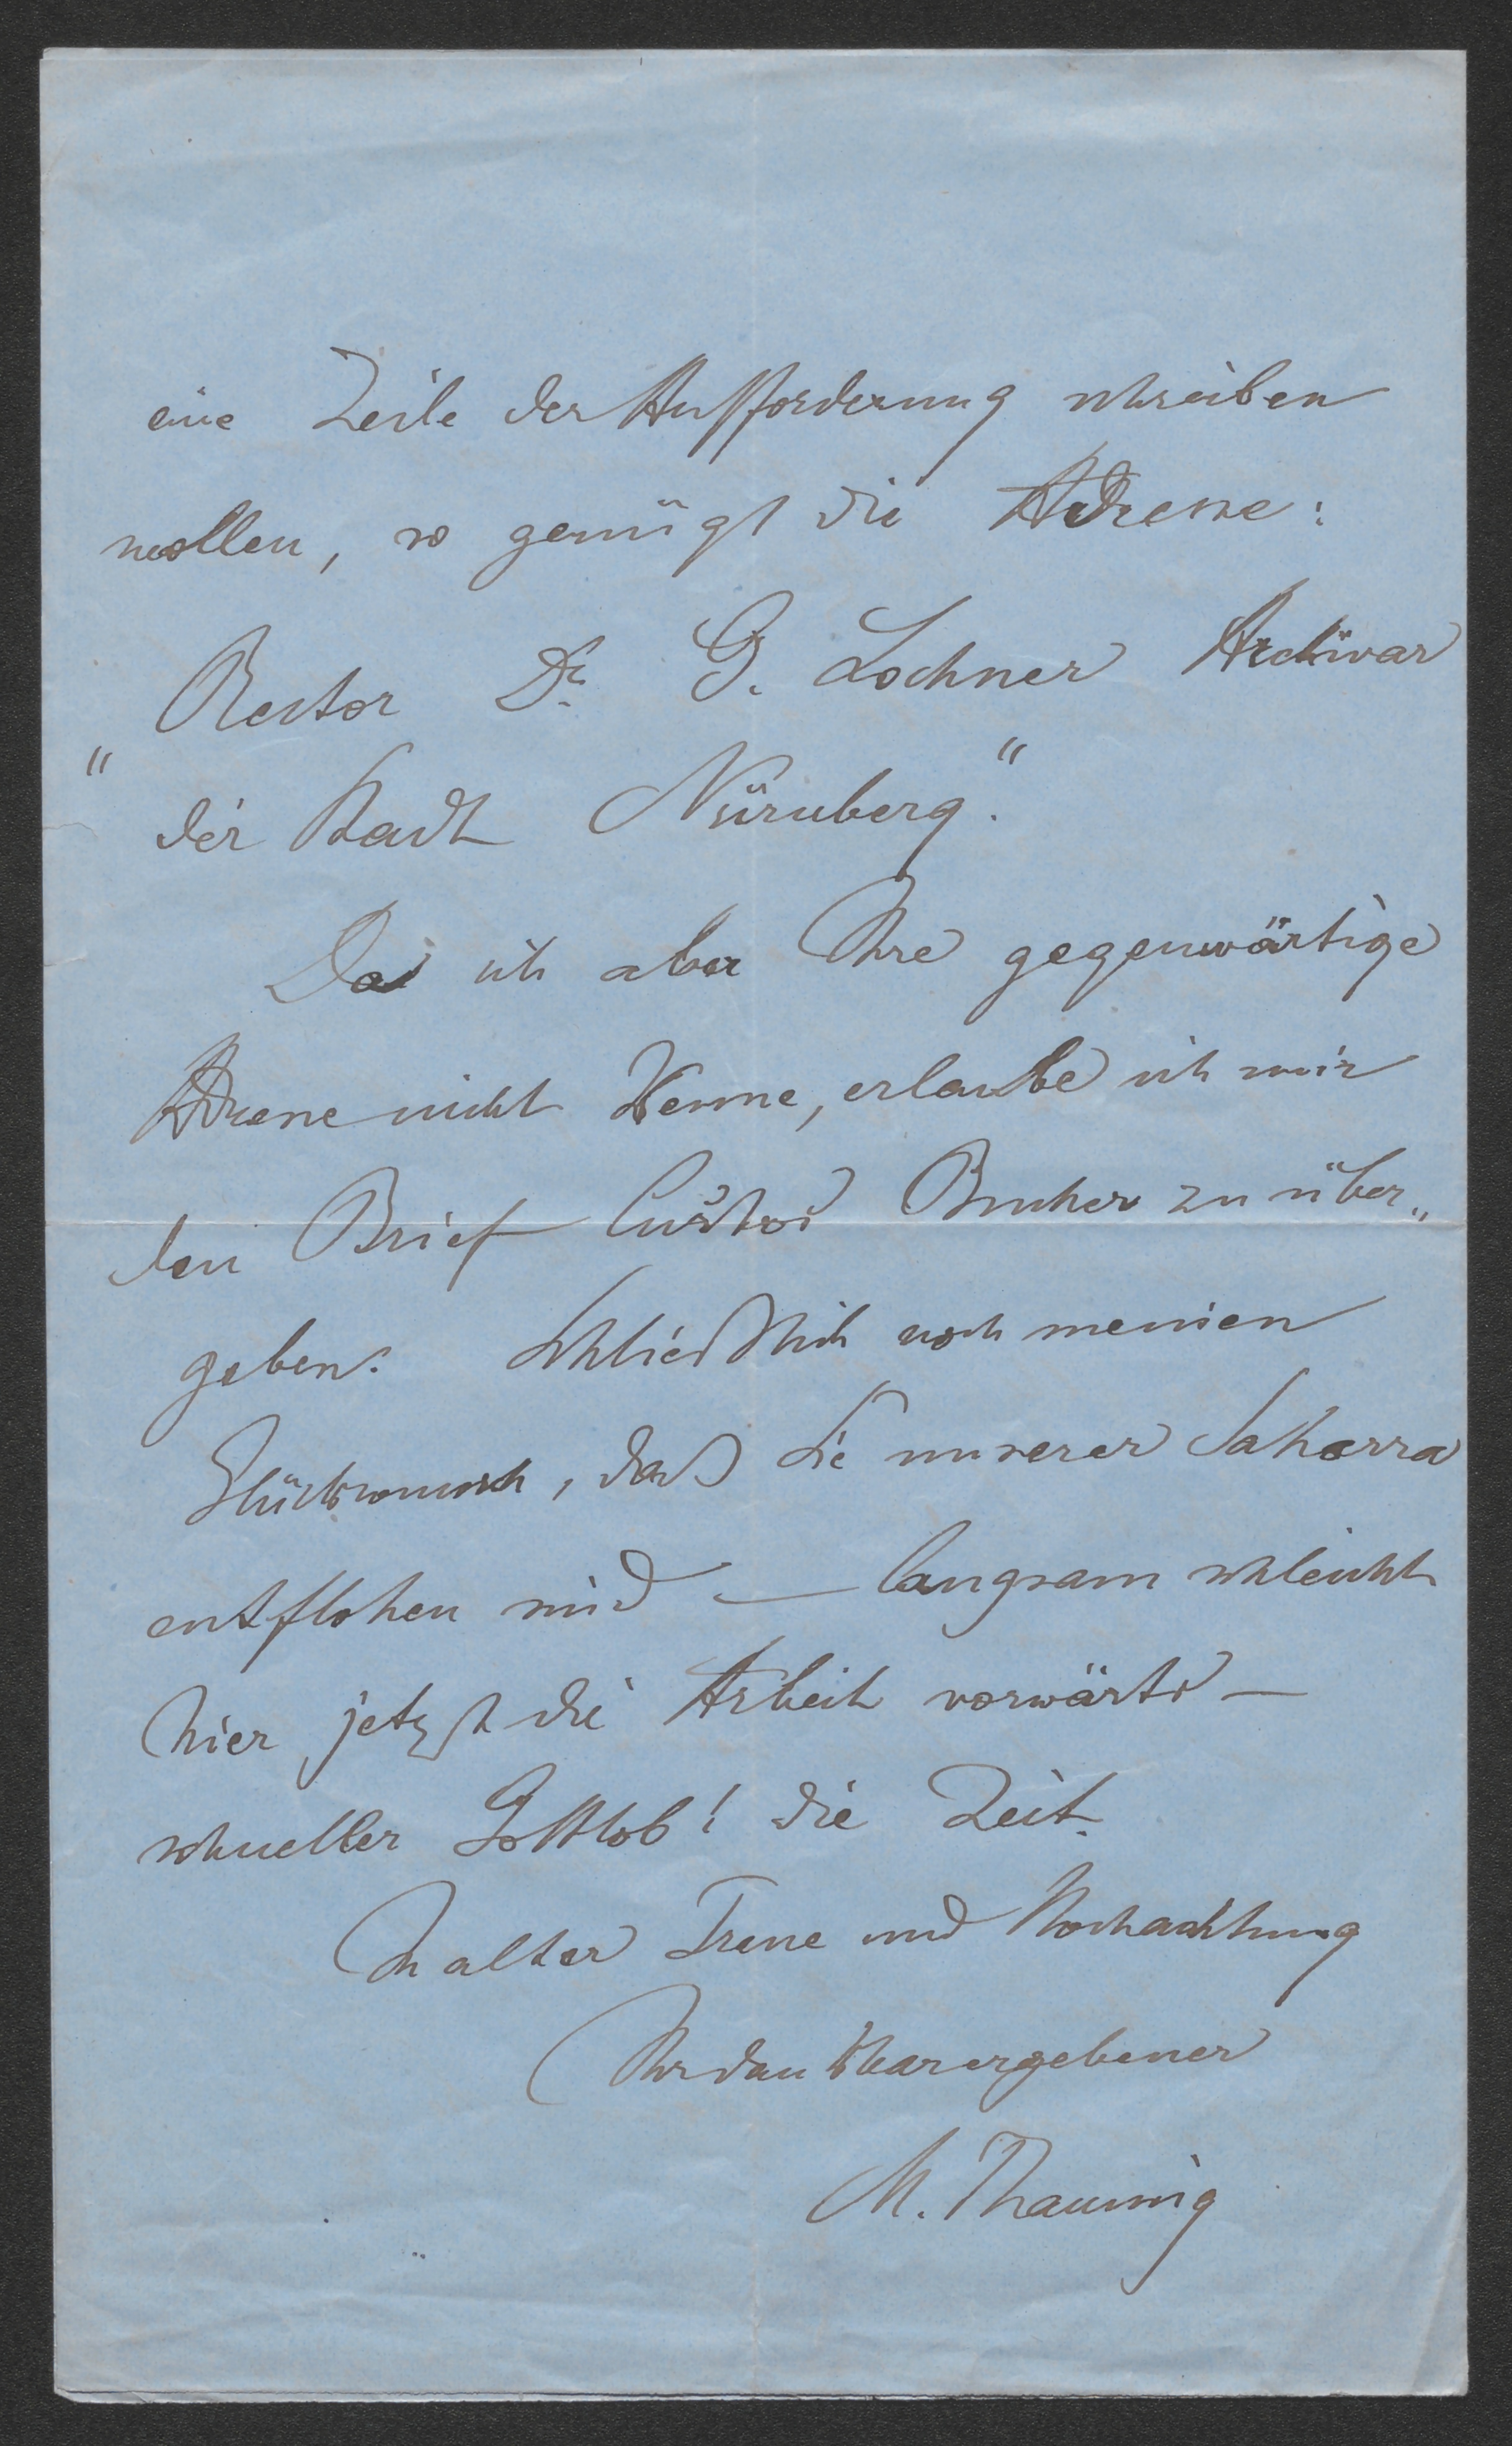 eine Zeile der Aufforderung schreiben
wollen, so genügt die Adresse:
Rector Dr. G. Lochner Archivar
" der Stadt Nürnberg."
Da ich aber Ihre gegenwärtige
Adresse nicht kenne, erlaube ich mir
den Brief Custos Bucher zu über„
geben. Schließlich noch meinen
Glückwunsch, daß Sie unserer Saharra
entflohen sind — langsam schleicht
hier jetzt die Arbeit vorwärts —
schneller Gottlob! die Zeit.
In alter Treue und Hochachtung
Ihr dankbar ergebener
M. Thausing